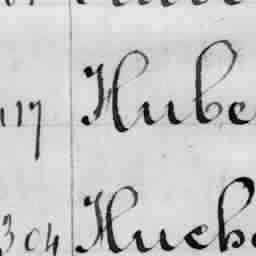 117 Hube
304 Hueb